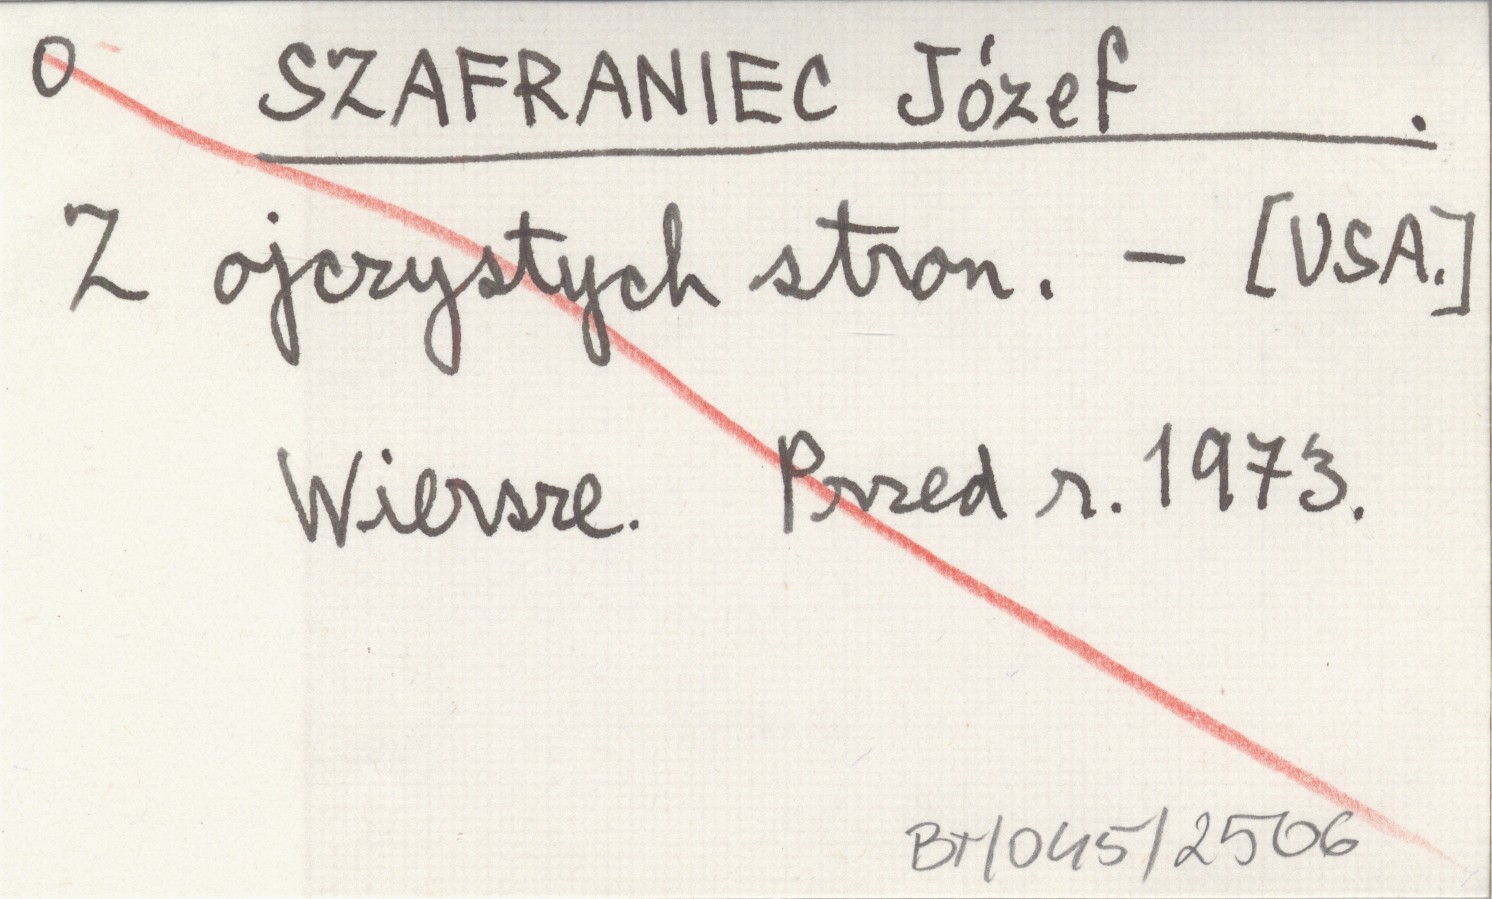 O SZAFRANIEC Józef .
Z ojczystych stron. - [USA.]
Wiersze. Przed r. 1973.
BT/045/2506